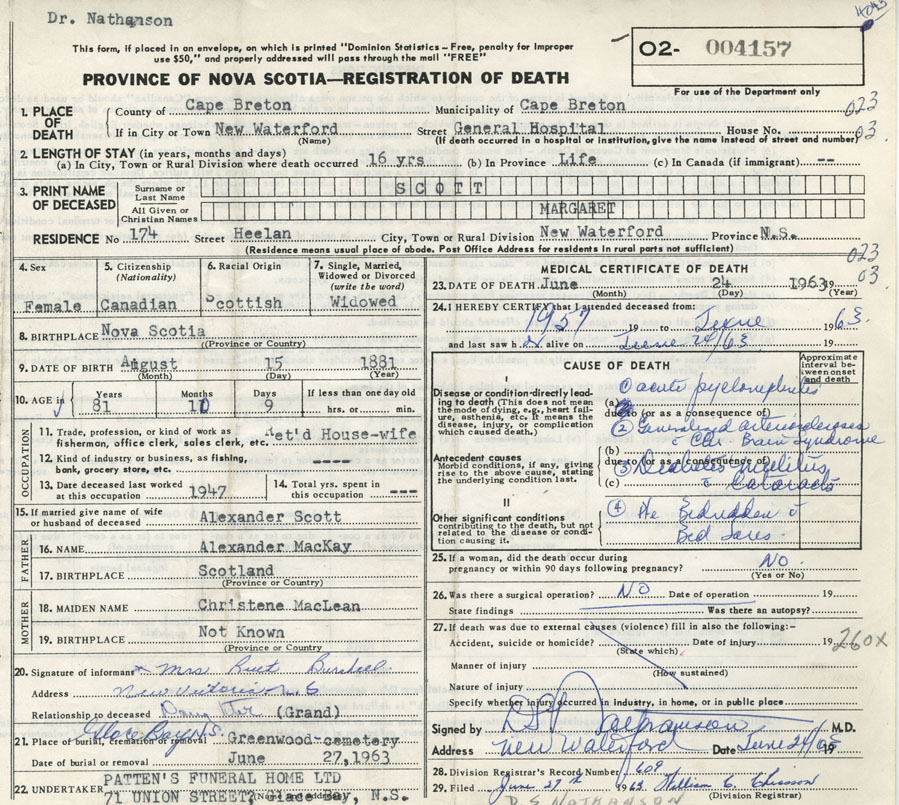 Dr. Nathanson
This form, if placed in an envelope, on which is printed "Dominion Statistics – Free, penalty for improper
use $50," and properly addressed will pass through the mail "FREE"
PROVINCE OF NOVA SCOTIA—REGISTRATION OF DEATH
O2- 004157
For use of the Department only
1. PLACE OF DEATH
County of Cape Breton Municipality of Cape Breton 023
If in City or Town New Waterford Street General Hospital House No. 03
(Name) (If death occurred in a hospital or institution, give the name instead of street and number)
2. LENGTH OF STAY (in years, months and days)
(a) In City, Town or Rural Division where death occurred 16 yrs (b) In Province Life (c) In Canada (if immigrant) --
3. PRINT NAME OF DECEASED
Surname or Last Name SCOTT
All Given or Christian Names MARGARET
RESIDENCE No 174 Street Heelan City, Town or Rural Division New Waterford Province N.S.
(Residence means usual place of abode. Post Office Address for residents in rural parts not sufficient)
023
03
4. Sex Female
5. Citizenship (Nationality) Canadian
6. Racial Origin Scottish
7. Single, Married, Widowed or Divorced (write the word) Widowed
8. BIRTHPLACE Nova Scotia
(Province or Country)
9. DATE OF BIRTH August 15 1881
(Month) (Day) (Year)
10. AGE in Years 81 Months 10 Days 9 If less than one day old hrs. or min.
OCCUPATION
11. Trade, profession, or kind of work as fisherman, office clerk, sales clerk, etc. Ret'd House-wife
12. Kind of industry or business, as fishing, bank, grocery store, etc. ----
13. Date deceased last worked at this occupation 1947
14. Total yrs. spent in this occupation ---
15. If married give name of wife or husband of deceased Alexander Scott
FATHER
16. NAME Alexander MacKay
17. BIRTHPLACE Scotland
(Province or Country)
MOTHER
18. MAIDEN NAME Christene MacLean
19. BIRTHPLACE Not Known
(Province or Country)
20. Signature of informant x Mrs
Address New Victoria N.S
Relationship to deceased Daughter (Grand)
Glace Bay N.S.
21. Place of burial, cremation or removal Greenwood-cemetery
Date of burial or removal June 27,1963
22. UNDERTAKER PATTEN'S FUNERAL HOME LTD
71 UNION STREET, Glace Bay, N.S.
(Name and address)
MEDICAL CERTIFICATE OF DEATH
23. DATE OF DEATH June 24 1963 19
(Month) (Day) (Year)
24. I HEREBY CERTIFY that I attended deceased from:
1957 19 to June 1963.
and last saw her alive on June 24/63
CAUSE OF DEATH
Approximate interval between onset and death
I
Disease or condition directly leading to death (This does not mean the mode of dying, e.g., heart failure, asthenia, etc. It means the disease, injury, or complication which caused death.)
(a) 1 acute pyelonephritis
due to (or as a consequence of)
2 Generalized arteriosclerosis
c Chr Brain Syndrome
Antecedent causes
Morbid conditions, if any, giving rise to the above cause, stating the underlying condition last.
(b)
due to (or as a consequence of)
3 Diabetes Mellitus
(c) c Cataracts
II
Other significant conditions
contributing to the death, but not related to the disease or condition causing it.
4 Bedridden c
Bed Sores.
25. If a woman, did the death occur during pregnancy or within 90 days following pregnancy? NO.
(Yes or No)
26. Was there a surgical operation? NO Date of operation 19
State findings Was there an autopsy?
27. If death was due to external causes (violence) fill in also the following:-
Accident, suicide or homicide? Date of injury 19
(State which)
260X
Manner of injury
(How sustained)
Nature of injury
Specify whether injury occurred in industry, in home, or in public place
Signed by Nathanson M.D.
Address New Waterford Date June 24/63
28. Division Registrar's Record Number 609
29. Filed June 27th 1963 William C. Chiasson
(Division Registrar)
D.S NATHANSON